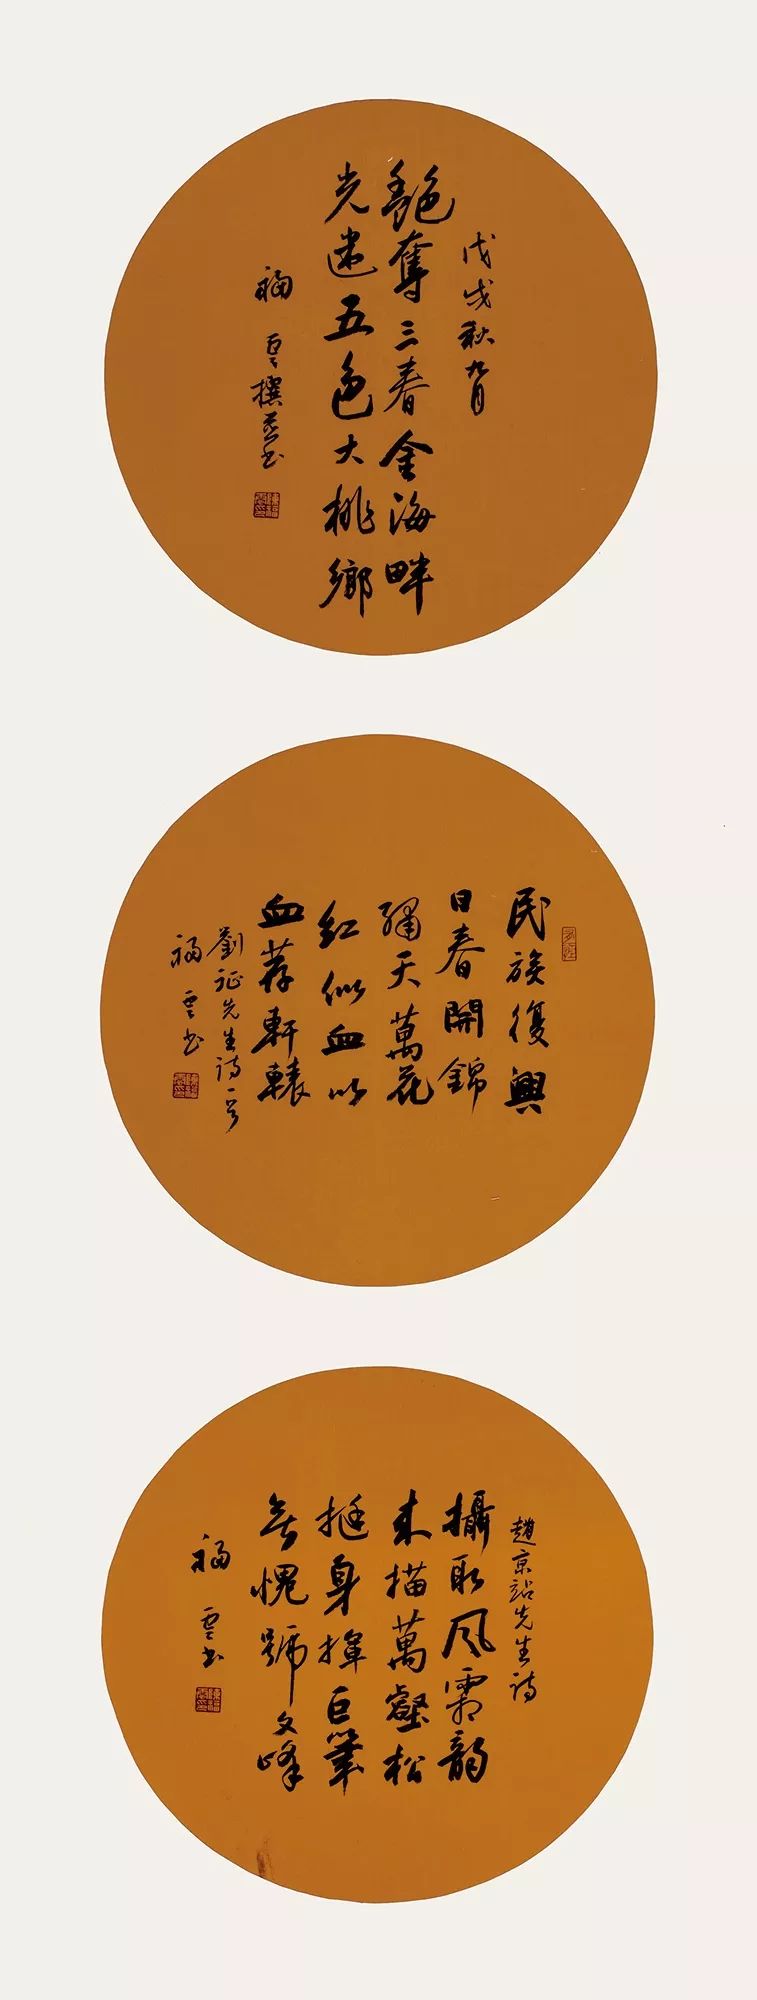 戊戌秋九月
艷奪三春金海畔
光迷五色大桃鄉
福雲撰並書
民族復興
日春開錦
繡天萬花
紅似血以
血荐軒轅
劉征先生詩一首
福雲書
趙京战先生詩
攝取风霜韵
來描萬壑松
挺身揮巨筆
無愧號文峰
福雲書